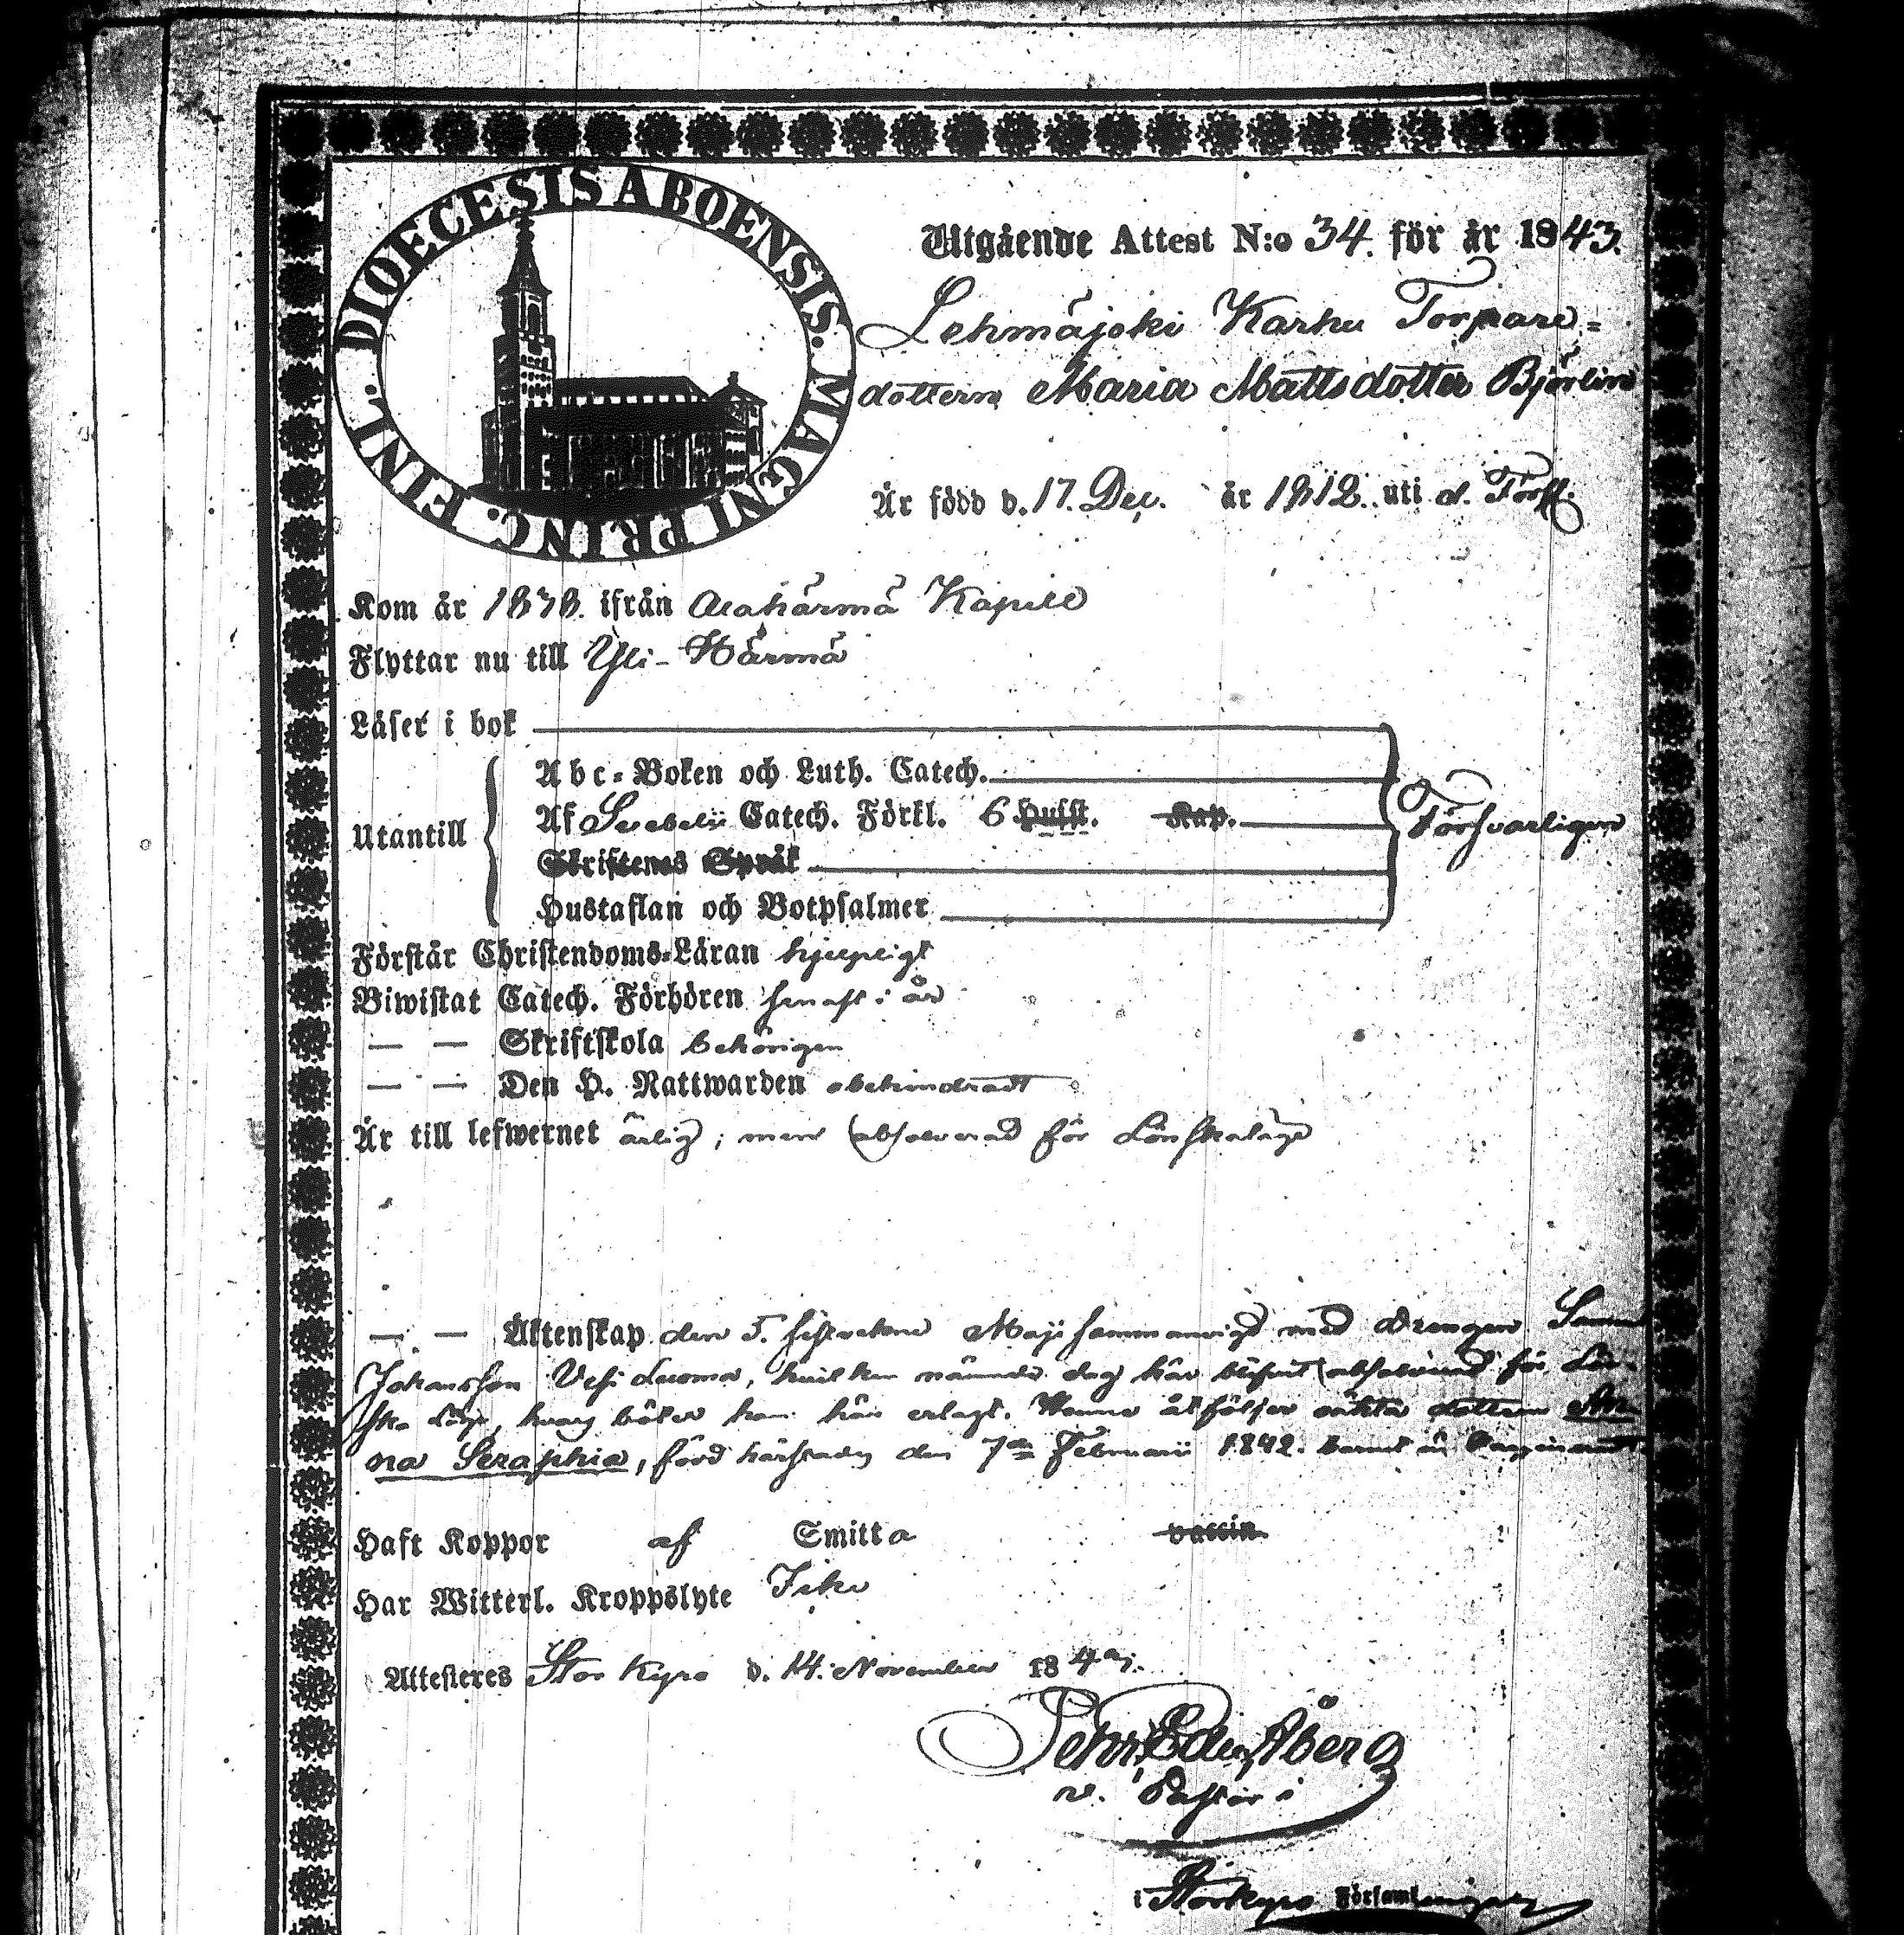 DIOECESIS ABOENSIS. MAGNI PRINC. FINL.
Utgående Attest N:o 34. för år 1843.
Lehmäjoki Karhu Torpare-
dottern Maria Mattsdotter Björlin
Är född d. 17. Dec. år 1812. uti d. Förss.
Kom år 1838. ifrån Alahärmä Kapell
Flyttar nu till Yli-Härmä
Läser i bok
Abc-Boken och Luth. Catech.
Utantill
Af Svebelii Catech. Förkl. 6 Hufst. Kap.
Försvarligen
Skriftenes Språk
Hustaflan och Botpsalmer
Förstår Christendoms-Läran hjelpligt
Biwistat Catech. Förhören senast i år
— — Skriftskola behörigen
— — Den H. Nattwarden obehindradt
Är till lefwernet ärlig; men absolverad för Lönskaläge
— — Äktenskap den 5. sistvekne Maji sammanvigd med Drengen
Johansson Vesiluoma, hvilken nämnde dag här blifvit absolverad för Lön-
ska läge, hvarg böter han här erlagt. Henne åtföljer oäkta dottern An-
na Seraphia, född härstädes den 7de Februarii 1842. Barnet är
Haft Koppor af Smitta vaccin.
Har Witterl. Kroppslyte Icke
Attesteres Storkyro d. 14. November 1843.
Pehr Edv. Åberg
v. Pastor i
i Storkyro Församlingar